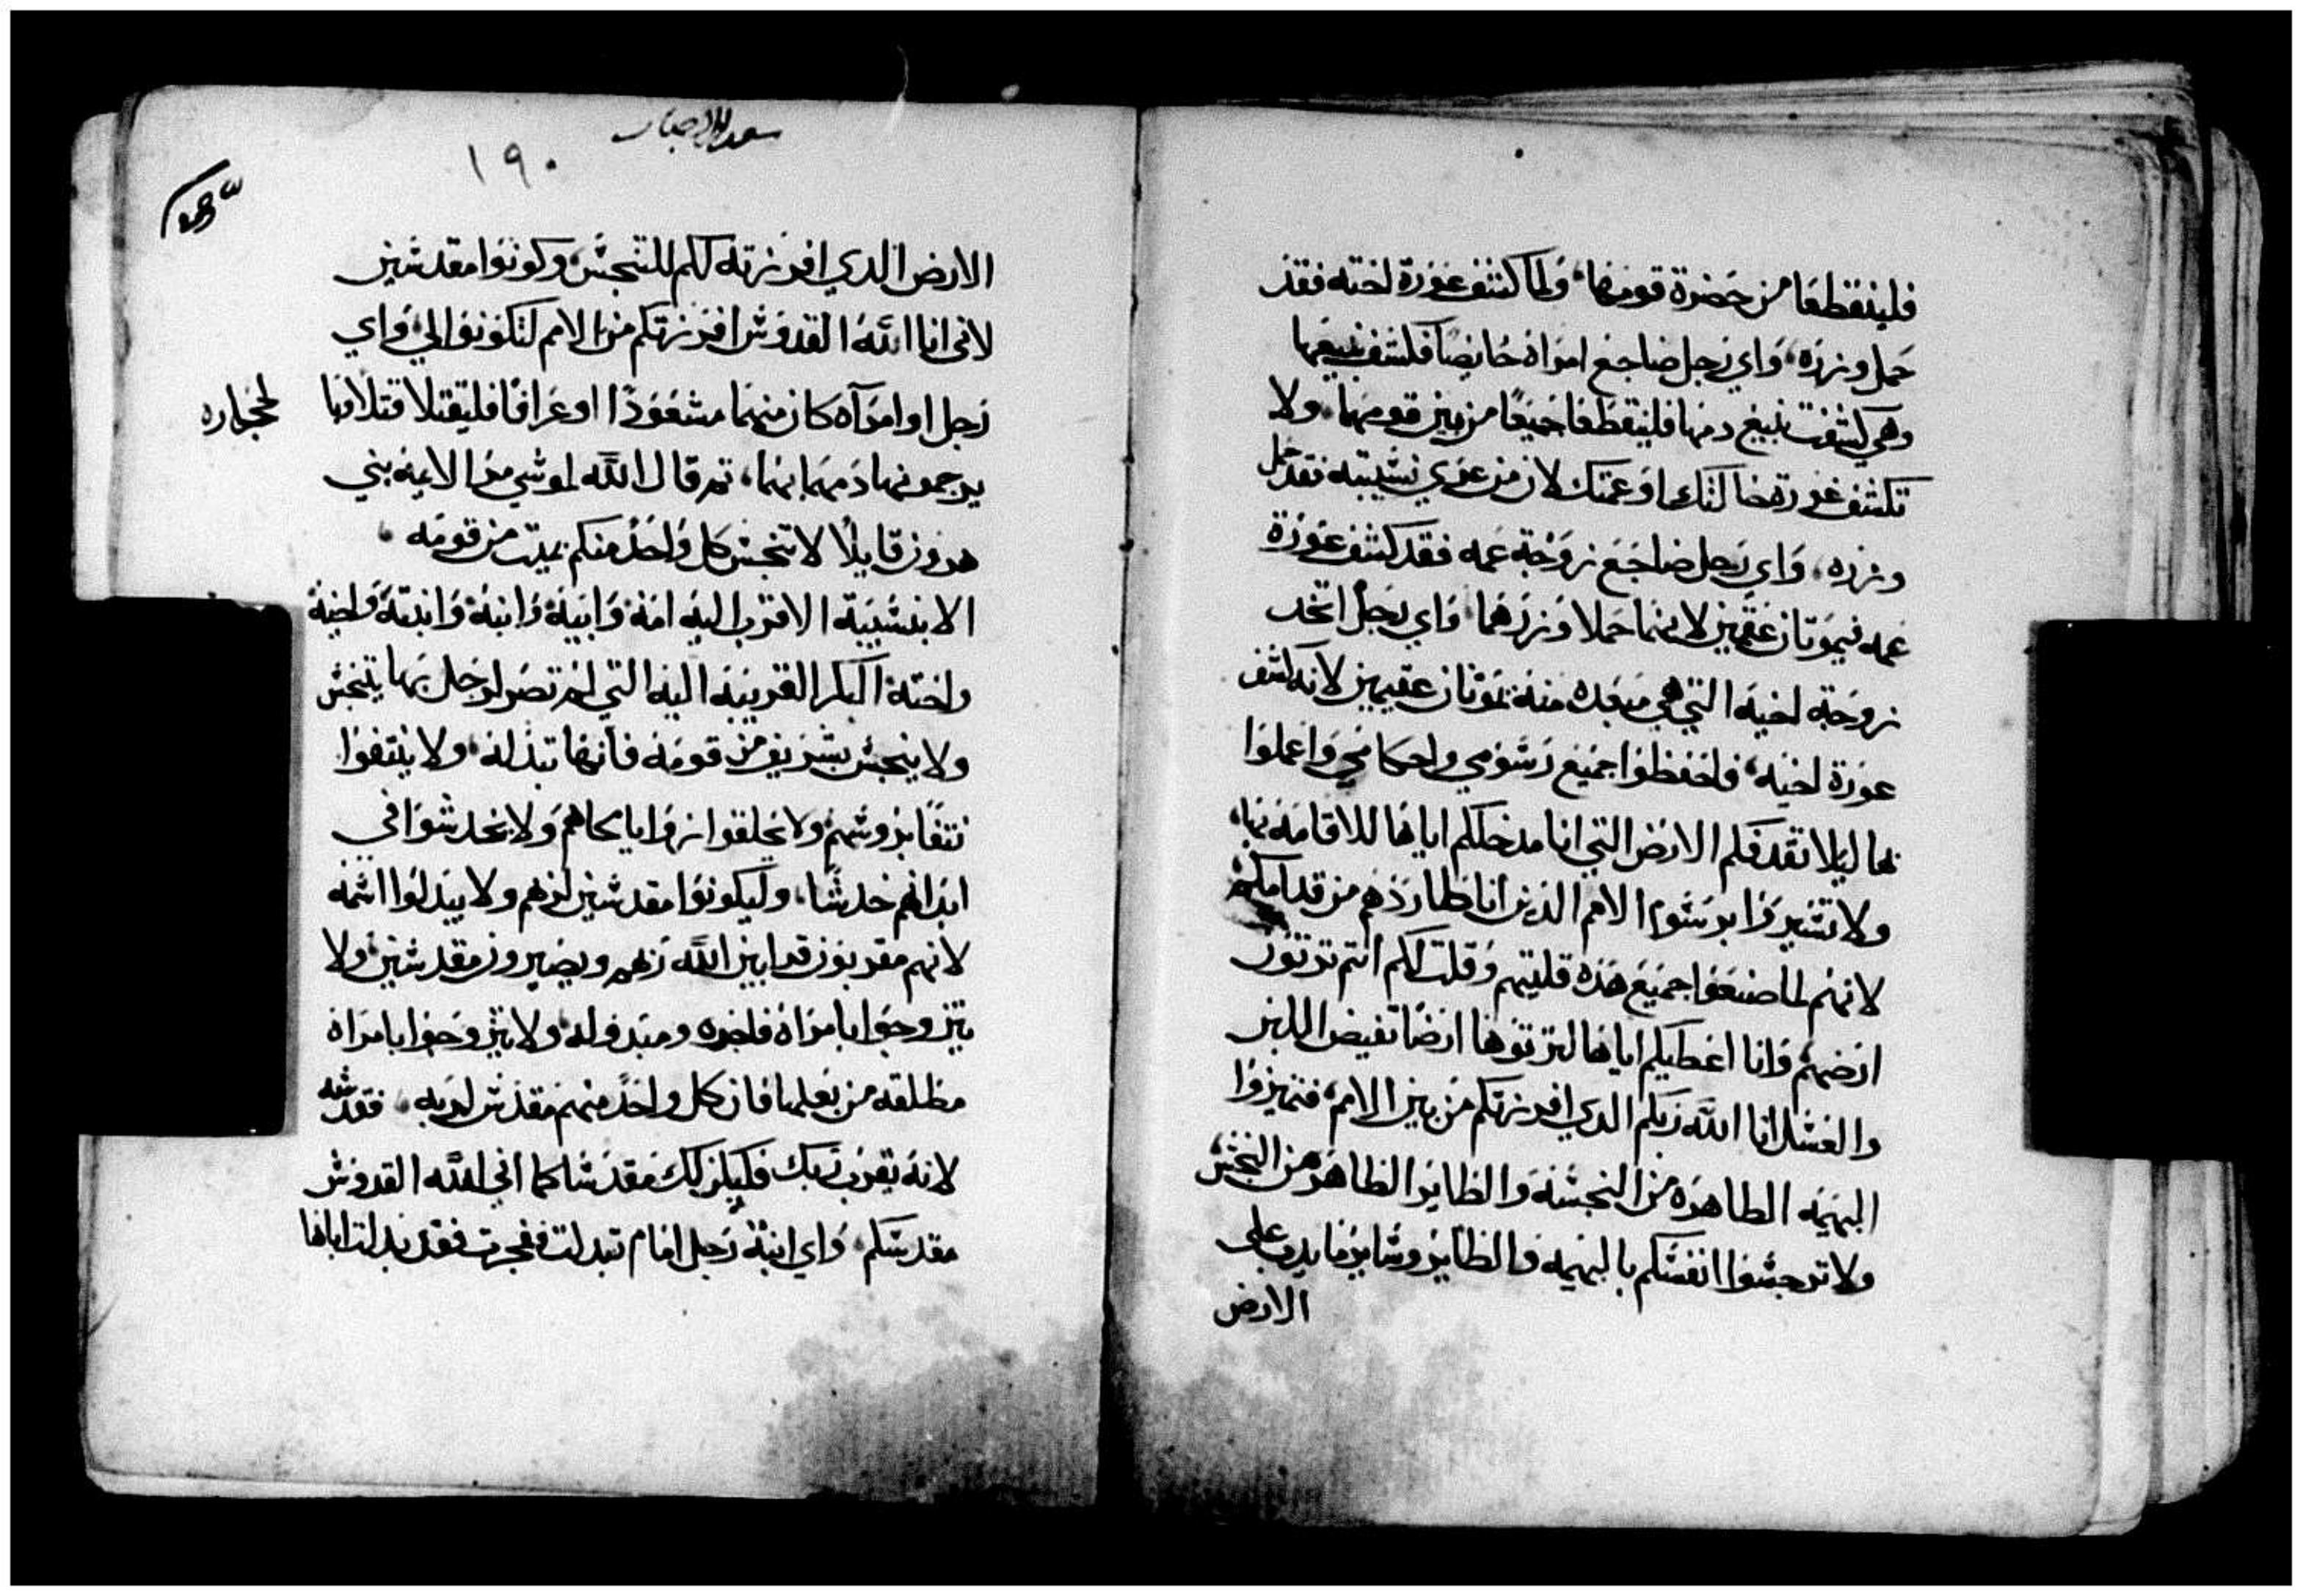 فلينقطعا من حضرة قومهما، ولما كشف عورة اخته فقد
حمل وزره، واي رجل ضاجع امراة حايضا فكشف نبيعها
وهي كشفت نبيع دمها فلينقطعا جميعا من بين قومهما، ولا
تكشف عورة خالتك او عمتك لان من عري نسيبته فقد حمل
وزره، واي رجل ضاجع زوجة عمه فقد كشف عورة
عمه فيموتان عقيمين لانهما حملا وزرهما، واي رجل اتخد
زوجة اخيه التي هي مبعده منه يموتان عقيمين لانه كشف
عورة اخيه، فاحفظوا جميع رسومي واحكامي واعملوا
بها ليلا تقدفكم الارض التي انا مدخلكم اياها للاقامه بها،
ولا تسيروا برسوم الامم الذين انا طاردهم من قدامكم
لانهم لما صنعوا جميع هذه قليتهم وقلت لكم انتم ترتون
ارضهم وانا اعطيكم اياها لترتوها ارضا تفيض اللبن
والعسل انا الله ربكم الدي افرزتكم من بين الامم، فتميزوا
البهيمه الطاهره من النجسه والطاير الطاهر من النجس،
ولا ترجسوا انفسكم بالبهيمه والطاير وساير ما يدب على
الارض
سفر الاحبار
١٩٠
الارض الدي افرزته لكم للتنجس، وكونوا مقدسين
لاني انا الله القدوس افرزتكم من الامم لتكونوا لي، واي
رجل او امراه كان منهما مشعودا او عرافا فليقتلا قتلا وبا
لحجاره
يرجمونهما دمهما بهما، تم قال الله لموسي مر الايمه بني
هرون قايلا لا تنجس كل واحد منكم بميت من قومه،
الا بنسيبه الاقرب اليه امه وابيه وابنه وابنته واخيه
واخته البكر القريبه اليه التي لم تصر لرجل بها يتنجس
ولا يتنجس بشريف من قومه فانها تبدله، ولا ينتفوا
نتفا بروسهم ولا يحلقوا زوايا لحاهم ولا يخدشوا في
ابدانهم خدشا، وليكونوا مقدسين لربهم ولا يبدلوا اسمه
لانهم مقربون قرابين الله ربهم ويصيرون مقدسين، ولا
يتزوجوا بامراة فاجره ومبدوله ولا يتزوجوا بامراة
مطلقه من بعلها فان كل واحد منهم مقدس لربه، فقدسه
لانه يقرب ربك فليكن لك مقدسا كما اني الله القدوس
مقدسكم، واي ابنة رجل امام تبدلت ففجرت فقد بدلت اباها